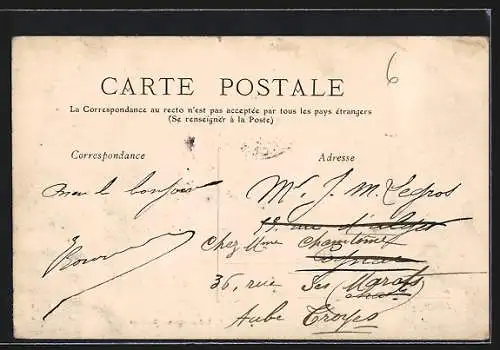 6
CARTE POSTALE
La Correspondance au recto n'est pas acceptée par tous les pays étrangers
(Se renseigner à la Poste)
Correspondance
Adresse
le bonjour
Mr J. M. Legros
rue d'alger
Chez Mme
36, rue des Marots
Aube Troyes